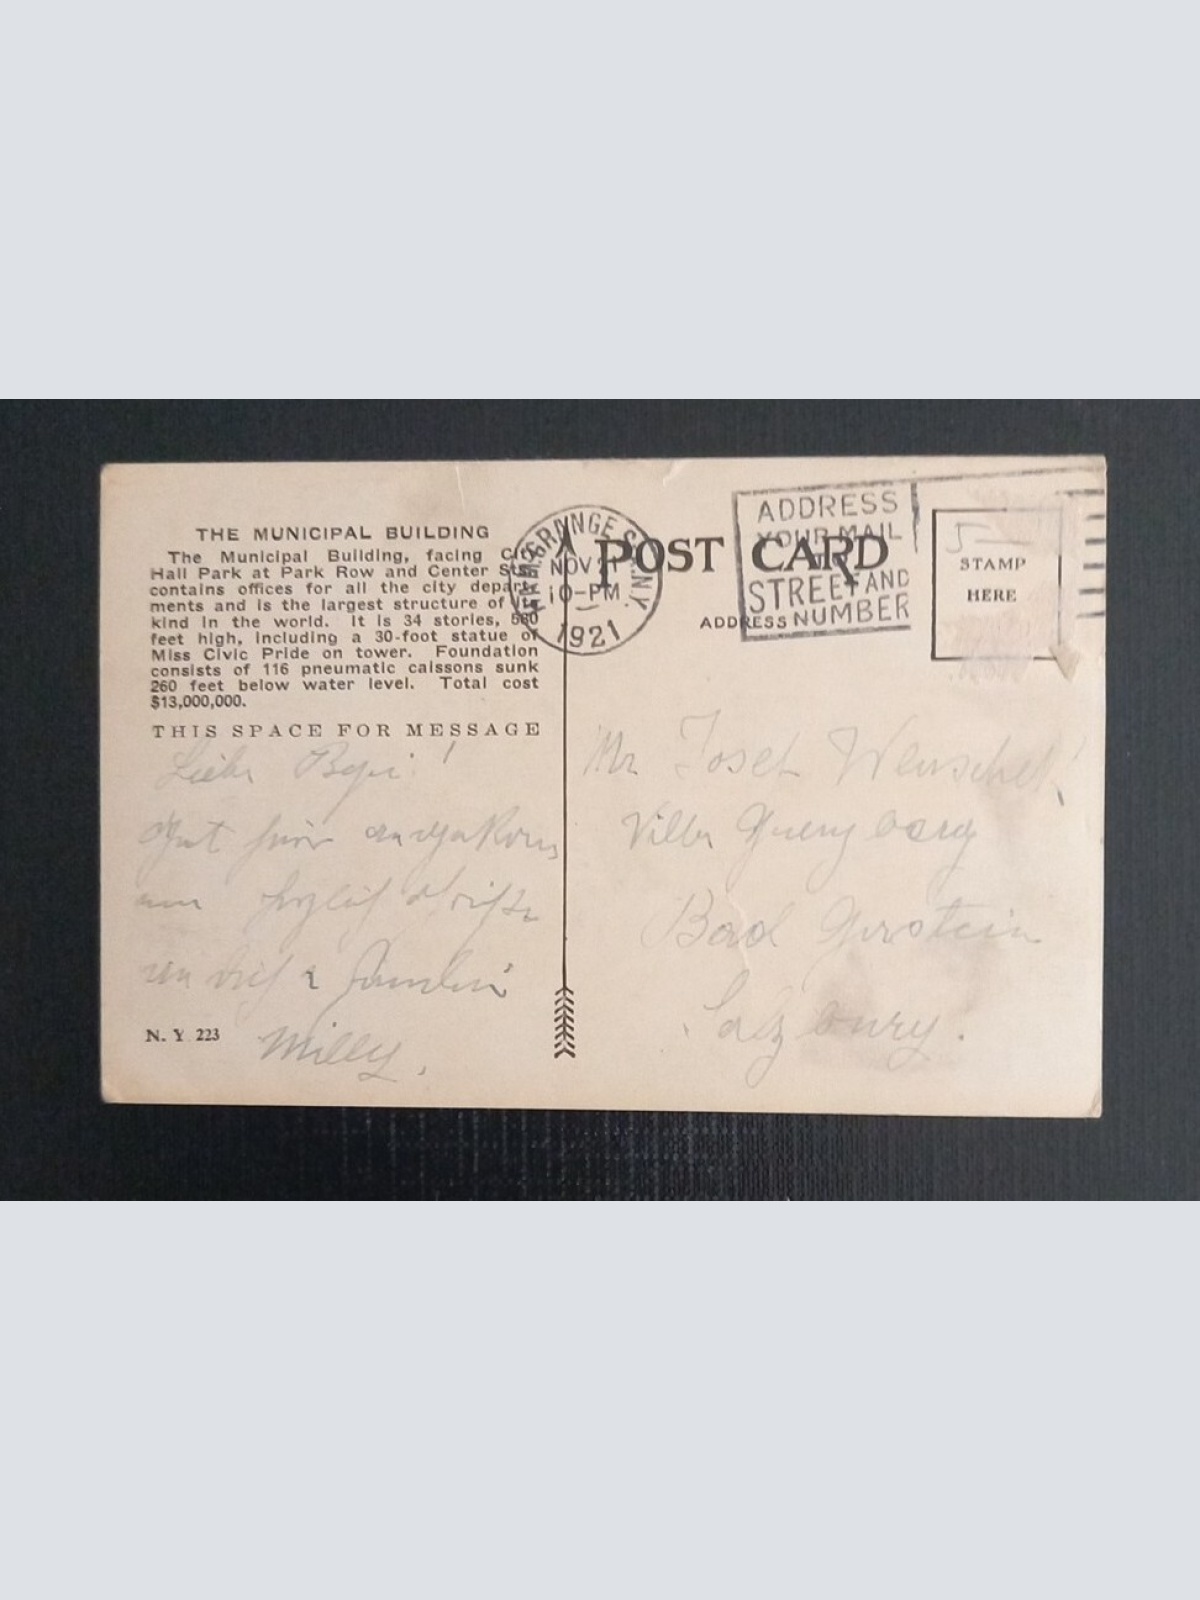 THE MUNICIPAL BUILDING
The Municipal Building, facing City
Hall Park at Park Row and Center Sts.
contains offices for all the city depart-
ments and is the largest structure of its
kind in the world. It is 34 stories, 580
feet high, including a 30-foot statue of
Miss Civic Pride on tower. Foundation
consists of 116 pneumatic caissons sunk
260 feet below water level. Total cost
$13,000,000.
THIS SPACE FOR MESSAGE
Lieber Pepi!
Gut hier angekom
men herzlich
Milly.
N. Y. 223
GRANGE STA. N.Y.
NOV
10-PM
1921
POST CARD
ADDRESS
ADDRESS
YOUR MAIL
TO
STREET AND
NUMBER
STAMP
HERE
Mr Josef
Villa
Bad Gastein
Salzburg.